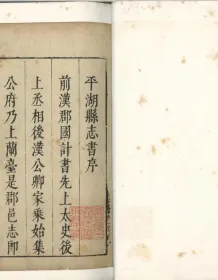 平湖縣志書序
前漢郡國計書先上太史後
上丞相後漢公卿家乘始集
公府乃上蘭臺是郡邑志卽